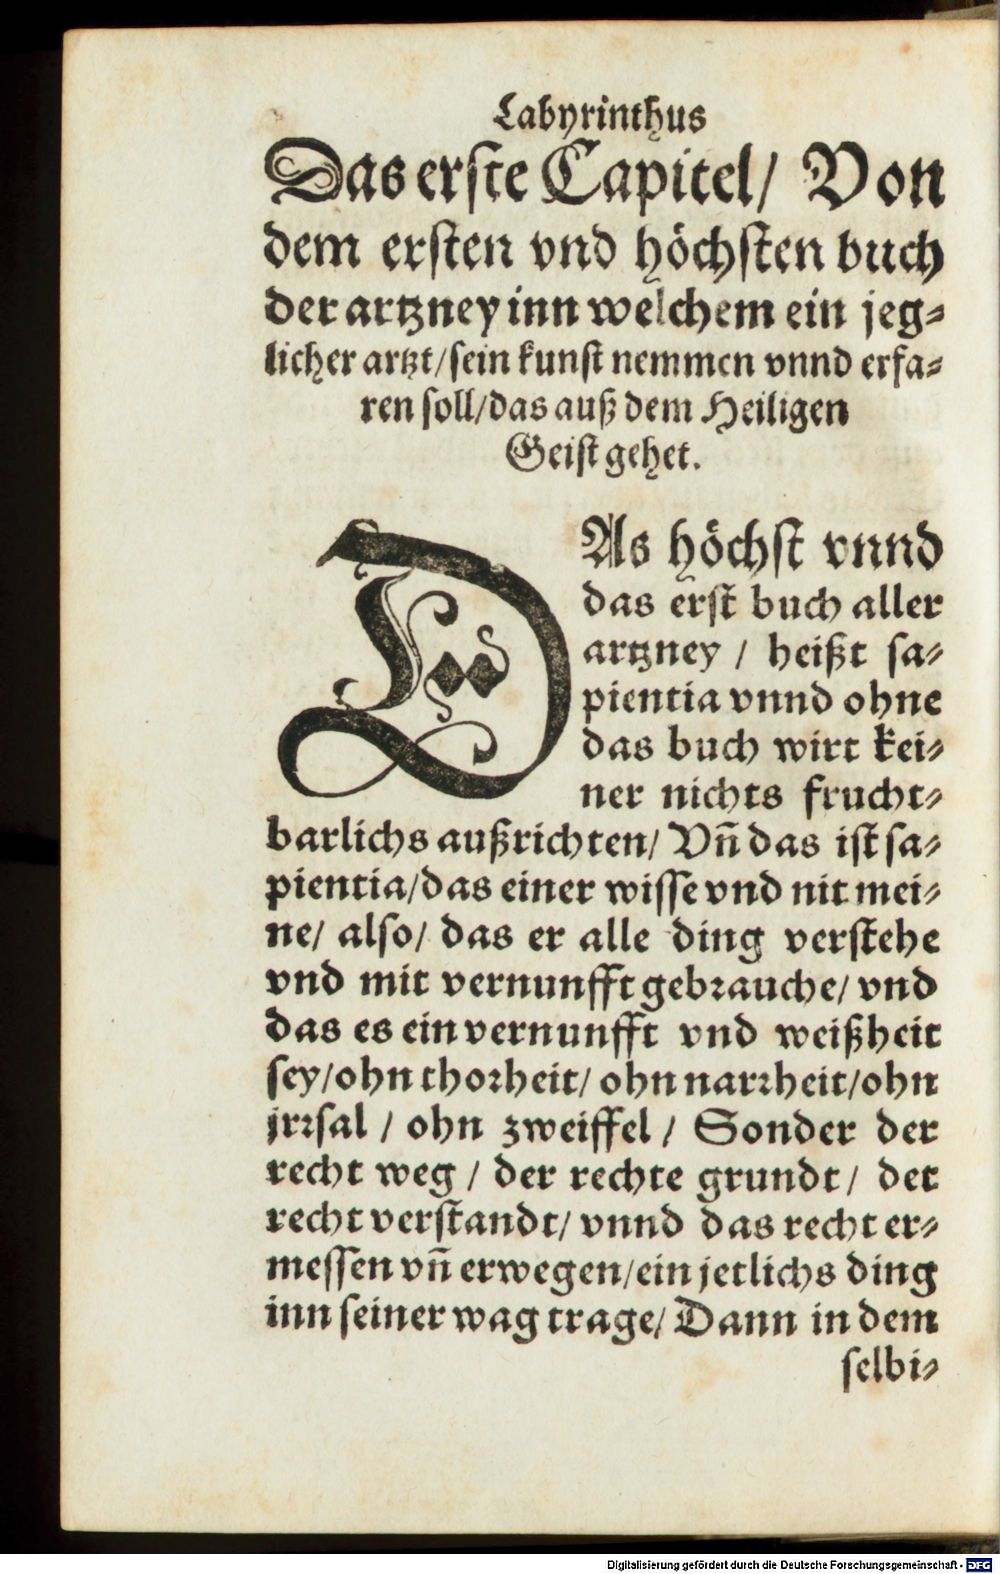 Labyrinthus
Das erste Capitel/ Von
dem ersten vnd höchsten buch
der artzney inn welchem ein jeg⸗
licher artzt/sein kunst nemmen vnnd erfa⸗
ren soll/das auß dem Heiligen
Geist gehet.
DAs höchst vnnd
das erst buch aller
artzney / heißt sa⸗
pientia vnnd ohne
das buch wirt kei⸗
ner nichts frucht⸗
barlichs außrichten/ Vn̄ das ist sa⸗
pientia/das einer wisse vnd nit mei⸗
ne/ also/ das er alle ding verstehe
vnd mit vernunfft gebrauche/ vnd
das es ein vernunfft vnd weißheit
sey/ohn thorheit/ ohn narrheit/ohn
jrrsal / ohn zweiffel / Sonder der
recht weg / der rechte grundt/ der
recht verstandt/ vnnd das recht er⸗
messen vn̄ erwegen/ein jetlichs ding
inn seiner wag trage/ Dann in dem
selbi⸗
Digitalisierung gefördert durch die Deutsche Forschungsgemeinschaft - DFG